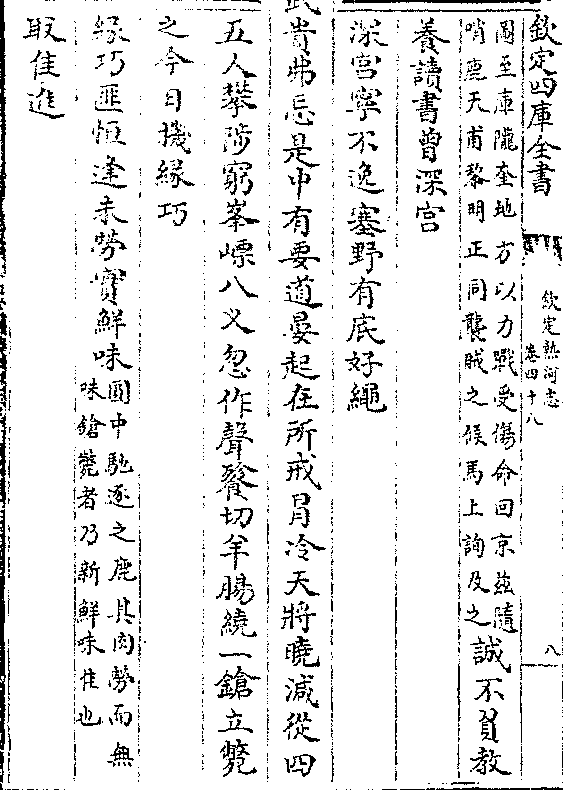 欽定四庫全書
欽定熱河志
卷四十八
八
圖至庫隴奎地方以力戰受傷命回京茲隨
哨鹿天甫黎明正同襲賊之候馬上詢及之
誠不負教
養讀書曾深宫
深宫寧不逸塞野有底好繩
武貴弗忘是中有要道晏起在所戒冒冷天將曉減從四
五人攀陟窮峯八叉忽作聲切羊腸繞一鎗立斃
之今日機緣巧
緣巧匪恒逢未勞實鮮味
圍中馳逐之鹿其肉勞而無
味鎗斃者乃新鮮味佳也
取佳進